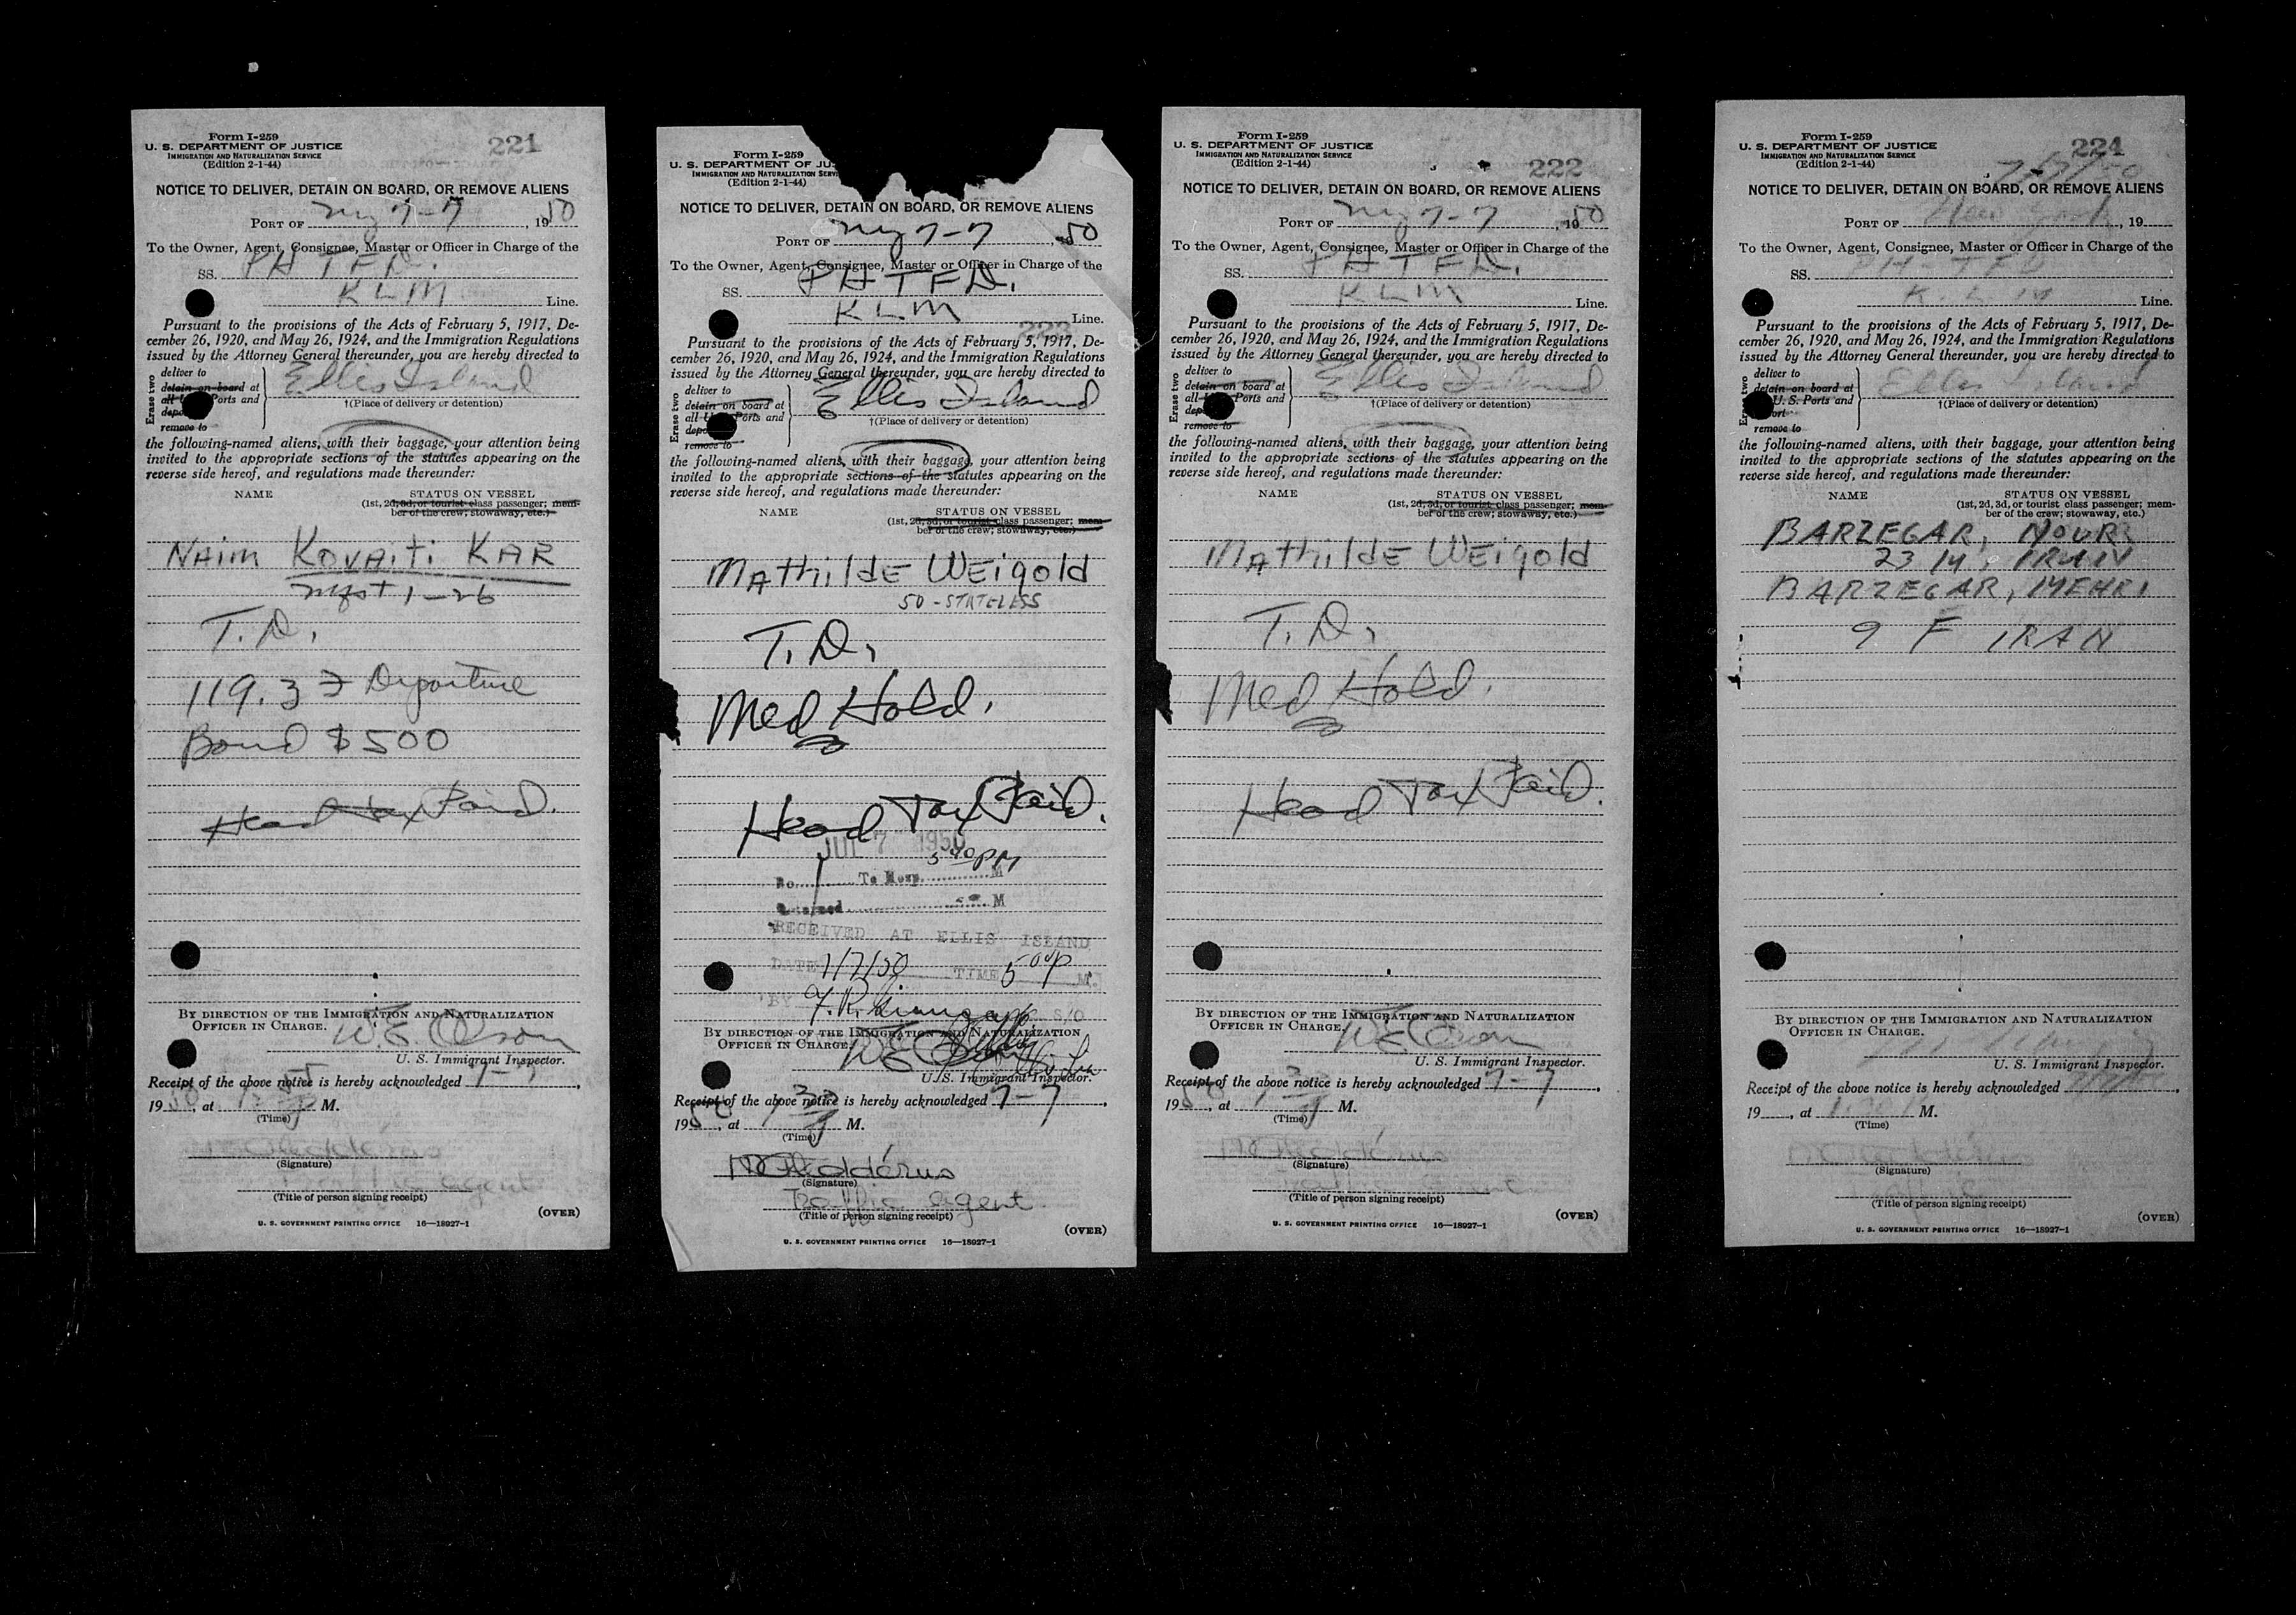 Form I-259
U. S. DEPARTMENT OF JUSTICE
IMMIGRATION AND NATURALIZATION SERVICE
(Edition 2-1-44)
221
NOTICE TO DELIVER, DETAIN ON BOARD, OR REMOVE ALIENS
PORT OF NY 7-7, 1950
To the Owner, Agent, Consignee, Master or Officer in Charge of the
SS. PH TFD.
KLM Line.
Pursuant to the provisions of the Acts of February 5, 1917, De-
cember 26, 1920, and May 26, 1924, and the Immigration Regulations
issued by the Attorney General thereunder, you are hereby directed to
Erase two
deliver to
detain on board at
all Ports and
remove to
Ellis Island
†(Place of delivery or detention)
the following-named aliens, with their baggage, your attention being
invited to the appropriate sections of the statutes appearing on the
reverse side hereof, and regulations made thereunder:
NAME STATUS ON VESSEL
(1st, 2d, 3d, or tourist class passenger; mem-
ber of the crew; stowaway, etc.)
NAIM KOVAITI KAR
Mfst 1-26
T.D.
119.3 Departure
Bond $500
Head Tax Paid.
BY DIRECTION OF THE IMMIGRATION AND NATURALIZATION
OFFICER IN CHARGE.
W.E. Olson
U. S. Immigrant Inspector.
Receipt of the above notice is hereby acknowledged 7-7,
1950, at M.
(Time)
(Signature)
Traffic agent
(Title of person signing receipt)
(OVER)
U. S. GOVERNMENT PRINTING OFFICE 16—18927-1
Form I-259
U. S. DEPARTMENT OF JUS
IMMIGRATION AND NATURALIZATION SERV
(Edition 2-1-44)
NOTICE TO DELIVER, DETAIN ON BOARD, OR REMOVE ALIENS
PORT OF NY 7-7 50
To the Owner, Agent, Consignee, Master or Officer in Charge of the
SS. PH TFD.
KLM Line.
223
Pursuant to the provisions of the Acts of February 5, 1917, De-
cember 26, 1920, and May 26, 1924, and the Immigration Regulations
issued by the Attorney General thereunder, you are hereby directed to
Erase two
deliver to
detain on board at
all U Ports and
remove to
Ellis Island
†(Place of delivery or detention)
the following-named aliens, with their baggage, your attention being
invited to the appropriate sections of the statutes appearing on the
reverse side hereof, and regulations made thereunder:
NAME STATUS ON VESSEL
(1st, 2d, 3d, or tourist class passenger; mem-
ber of the crew; stowaway, etc.)
MATHILDE WEIGOLD
50 - STATELESS
T.D.
Med Hold.
Head Tax Paid.
JUL 7 1950
5 40 PM
No. To Hosp. M
Returned M
RECEIVED AT ELLIS ISLAND
DATE 7/7/50 TIME 5 00 P M.
BY S/O
BY DIRECTION OF THE IMMIGRATION AND NATURALIZATION
OFFICER IN CHARGE.
W E Olson
U. S. Immigrant Inspector.
Receipt of the above notice is hereby acknowledged 7-7,
1950, at 1 30 M.
(Time)
(Signature)
Traffic agent
(Title of person signing receipt)
(OVER)
U. S. GOVERNMENT PRINTING OFFICE 16—18927-1
Form I-259
U. S. DEPARTMENT OF JUSTICE
IMMIGRATION AND NATURALIZATION SERVICE
(Edition 2-1-44)
222
NOTICE TO DELIVER, DETAIN ON BOARD, OR REMOVE ALIENS
PORT OF NY 7-7, 1950
To the Owner, Agent, Consignee, Master or Officer in Charge of the
SS. PH TFD.
KLM Line.
Pursuant to the provisions of the Acts of February 5, 1917, De-
cember 26, 1920, and May 26, 1924, and the Immigration Regulations
issued by the Attorney General thereunder, you are hereby directed to
Erase two
deliver to
detain on board at
all Ports and
remove to
Ellis Island
†(Place of delivery or detention)
the following-named aliens, with their baggage, your attention being
invited to the appropriate sections of the statutes appearing on the
reverse side hereof, and regulations made thereunder:
NAME STATUS ON VESSEL
(1st, 2d, 3d, or tourist class passenger; mem-
ber of the crew; stowaway, etc.)
MATHILDE WEIGOLD
T.D.
Med Hold.
Head Tax Paid.
BY DIRECTION OF THE IMMIGRATION AND NATURALIZATION
OFFICER IN CHARGE.
W E Olson
U. S. Immigrant Inspector.
Receipt of the above notice is hereby acknowledged 7-7,
1950, at 1 30 M.
(Time)
(Signature)
(Title of person signing receipt)
(OVER)
U. S. GOVERNMENT PRINTING OFFICE 16—18927-1
Form I-259
U. S. DEPARTMENT OF JUSTICE
IMMIGRATION AND NATURALIZATION SERVICE
(Edition 2-1-44)
224
7/7/50
NOTICE TO DELIVER, DETAIN ON BOARD, OR REMOVE ALIENS
PORT OF New York, 19
To the Owner, Agent, Consignee, Master or Officer in Charge of the
SS. PH-TFD
K.L.M Line.
Pursuant to the provisions of the Acts of February 5, 1917, De-
cember 26, 1920, and May 26, 1924, and the Immigration Regulations
issued by the Attorney General thereunder, you are hereby directed to
deliver to
detain on board at
U. S. Ports and
remove to
Ellis Island
†(Place of delivery or detention)
the following-named aliens, with their baggage, your attention being
invited to the appropriate sections of the statutes appearing on the
reverse side hereof, and regulations made thereunder:
NAME STATUS ON VESSEL
(1st, 2d, 3d, or tourist class passenger; mem-
ber of the crew; stowaway, etc.)
BARZEGAR, NOURI
23 M, IRAN
BARZEGAR, MEHRI
9 F IRAN
BY DIRECTION OF THE IMMIGRATION AND NATURALIZATION
OFFICER IN CHARGE.
U. S. Immigrant Inspector.
Receipt of the above notice is hereby acknowledged
19, at M.
(Time)
(Signature)
(Title of person signing receipt)
(OVER)
U. S. GOVERNMENT PRINTING OFFICE 16—18927-1